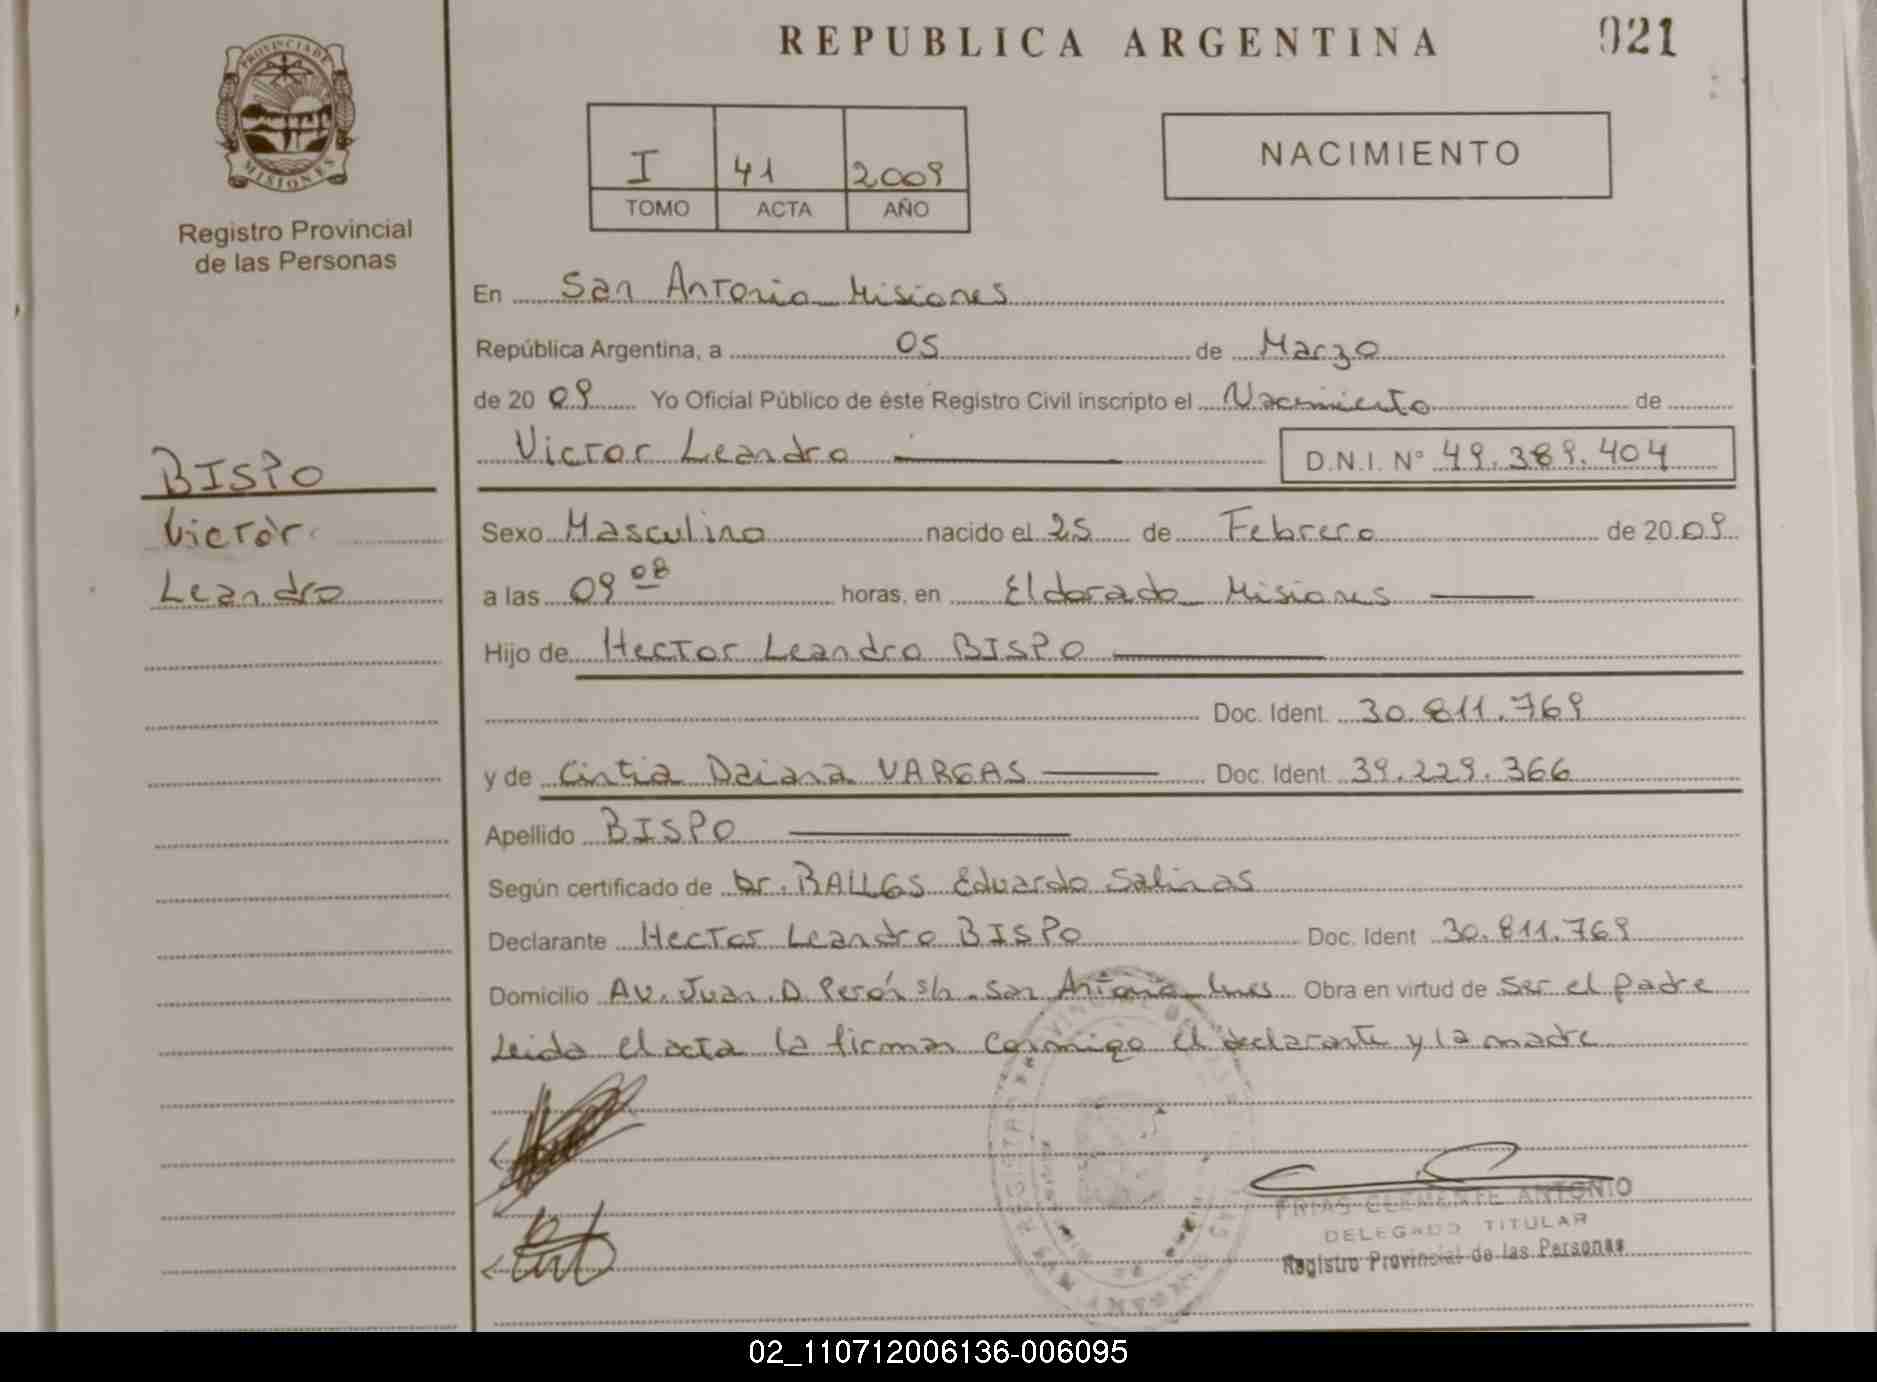 REPUBLICA ARGENTINA
021
PROVINCIA DE
MISIONES
Registro Provincial
de las Personas
I 41 2009
TOMO ACTA AÑO
NACIMIENTO
En San Antonio Misiones
República Argentina, a 05 de Marzo
de 20 09 Yo Oficial Público de éste Registro Civil inscripto el Nacimiento de
Victor Leandro D.N.I. N° 49.389.404
BISPO
Victor
Leandro
Sexo Masculino nacido el 25 de Febrero de 20 09
a las 09 08 horas, en Eldorado Misiones
Hijo de Hector Leandro BISPO
Doc. Ident. 30.811.769
y de Cintia Daiana VARGAS Doc. Ident. 39.229.366
Apellido BISPO
Según certificado de Dr. Eduardo Salinas
Declarante Hector Leandro BISPO Doc. Ident 30.811.769
Domicilio Av. Juan D. Perón s/n. San Antonio Mnes Obra en virtud de Ser el padre
Leida el acta la firman conmigo el declarante y la madre
FRIAS CLEMENTE ANTONIO
DELEGADO TITULAR
Registro Provincial de las Personas
02_110712006136-006095